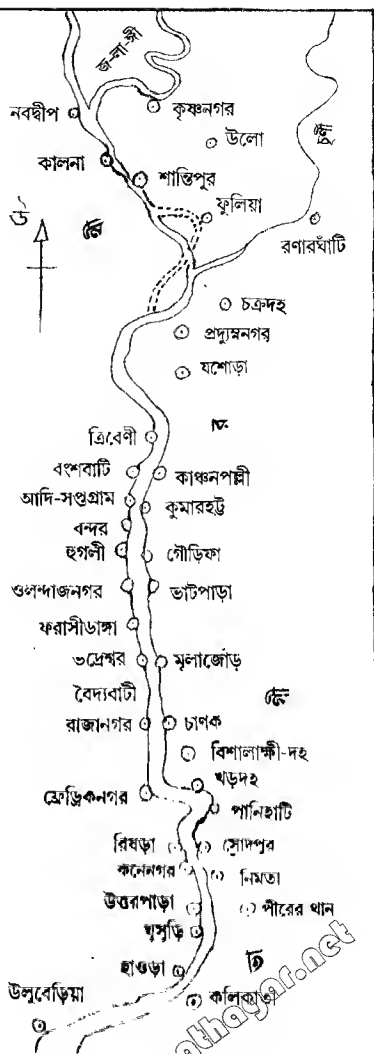 জ-লা-ঙ্গী
নবদ্বীপ
কৃষ্ণনগর
উলো
চূর্ণী
কালনা
শান্তিপুর
ফুলিয়া
উ
রণারঘাঁটি
চক্রদহ
প্রদ্যুম্ননগর
যশোড়া
ত্রিবেণী
বংশবাটি
কাঞ্চনপল্লী
আদি-সপ্তগ্রাম
কুমারহট্ট
বন্দর
হুগলী
গৌড়িফা
ওলন্দাজনগর
ভাটপাড়া
ফরাসীডাঙ্গা
ভদ্রেশ্বর
মূলাজোড়
বৈদ্যবাটী
রাজানগর
চাণক
বিশালাক্ষী-দহ
খড়দহ
ফ্রেড্রিকনগর
পানিহাটি
রিষড়া
সোদপুর
কনেনগর
নিমতা
উত্তরপাড়া
পীরের থান
ঘুসুড়ি
হাওড়া
উলুবেড়িয়া
কলিকাতা
athagar.net